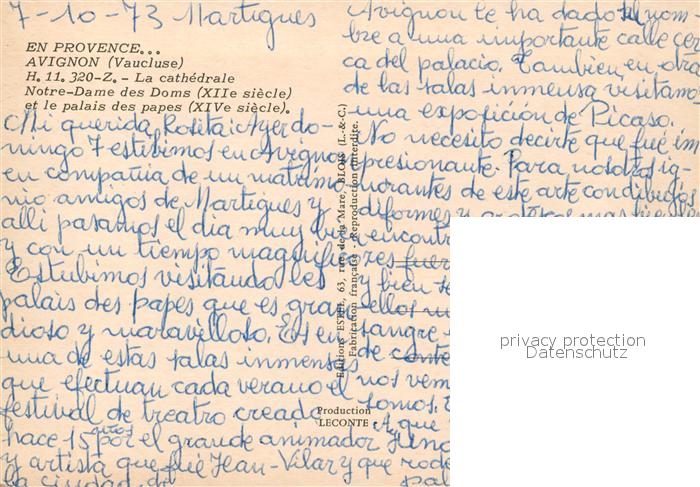 7-10-73 Martigues
EN PROVENCE...
AVIGNON (Vaucluse)
H. 11. 320-Z. - La cathédrale
Notre-Dame des Doms (XIIe siècle)
et le palais des papes (XIVe siècle).
Mi querida Rosita: Ayer do-
mingo 7 estubimos en Avignon
en compañia de un matrimo
nio amigos de Martigues y
alli pasamos el dia muy bien
y con un tiempo magnifico
Estubimos visitando les
palais des papes que es gran
dioso y maravilloso. Es en
una de estas salas inmensas
que efectuan cada verano el
festival de treatro creado
hace 15 años por el grande animador
y artista que fué Jean-Vilar y que
la ciudad de
Avignon le ha dado el nom
bre a una importante calle cer
ca del palacio. Tambien en otra
de las salas inmensa visitamo
una exposición de Picaso.
No necesito decirte que fué im
presionante. Para nosotros ig-
norantes de este arte con dibujos
diformes y
encont
res fuer
y bien
ellos
sangre
de
nos vem
somos.
A que
rode
pal
Editions ESTEL, 63, rue de la Mare, BLOIS (L.-&-C.)
Fabrication française - Reproduction interdite.
Production
LECONTE
privacy protection
Datenschutz